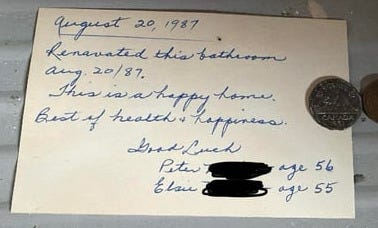 August 20, 1987
Renavated this bathroom
Aug. 20/87.
This is a happy home.
Best of health & happiness.
Good Luck
Peter age 56
Elsie age 55
CANADA